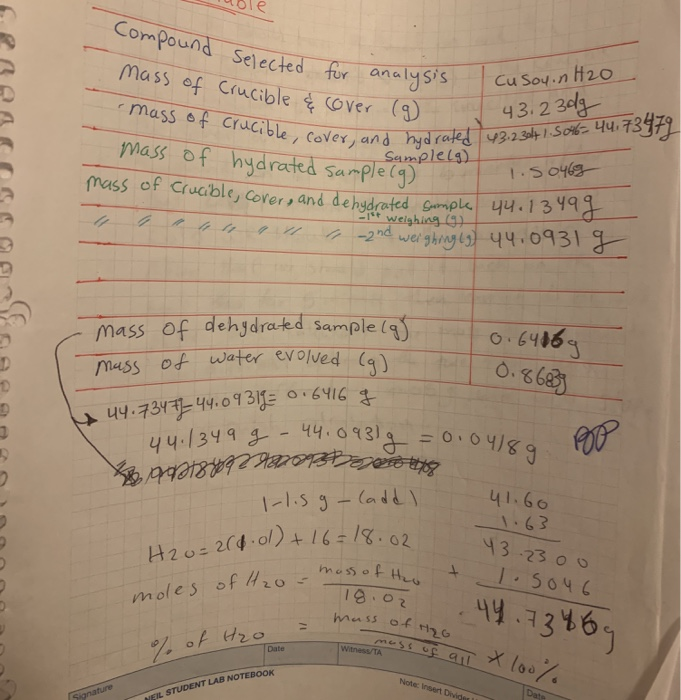 Compound Selected for analysis CuSO4.nH2O
Mass of Crucible & Cover (g) 43.230g
mass of crucible, cover, and hydrated Sample(g) 43.230+1.5046= 44.7347g
Mass of hydrated sample(g) 1.5046g
Mass of Crucible, cover, and dehydrated sample 1st weighing (g) 44.1349g
" " " " " " " -2nd weighing(g) 44.0931 g
Mass of dehydrated sample(g) 0.6416g
Mass of water evolved (g)
44.7347g-44.0931g= 0.6416 g
44.1349 g - 44.0931g = 0.0418g
1-1.5 g - (add)
41.60
1.63
43.2300
+ 1.5046
44.7346g
H2O = 2(1.01) + 16 = 18.02
moles of H2O = mass of H2O
18.02
% of H2O = mass of H2O
mass of all × 100%
Signature
Date
Witness/TA
Date
NEIL STUDENT LAB NOTEBOOK
Note: Insert Divider